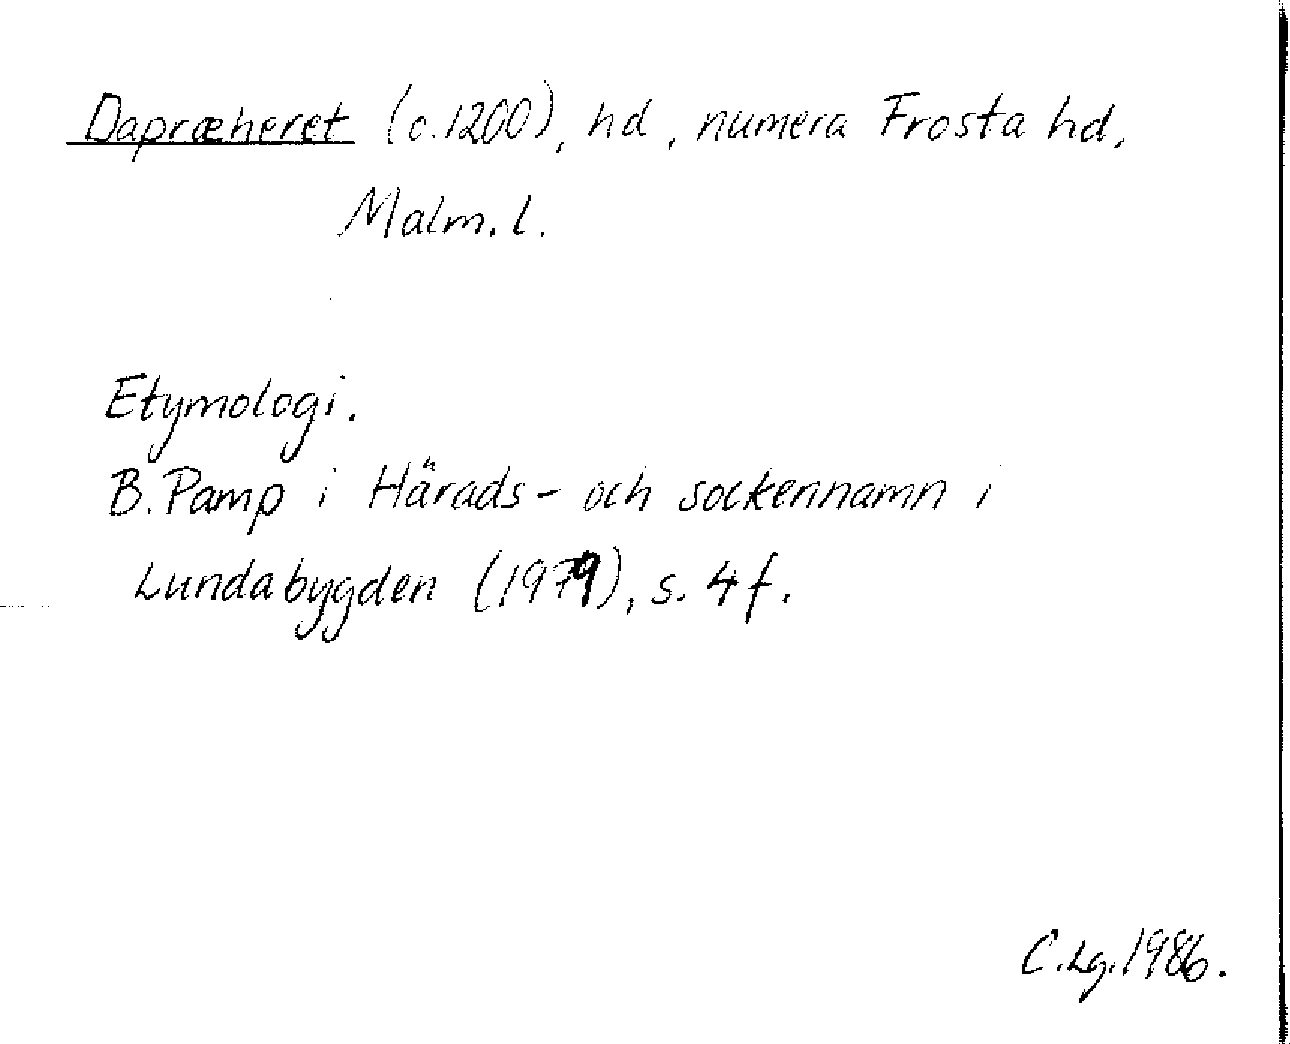 Dapræheret (c.1200), hd, numera Frosta hd,
Malm.l.
Etymologi.
B.Pamp i Härads- och sockennamn i
Lundabygden (1979), s. 4f.
C.Lg.1986.